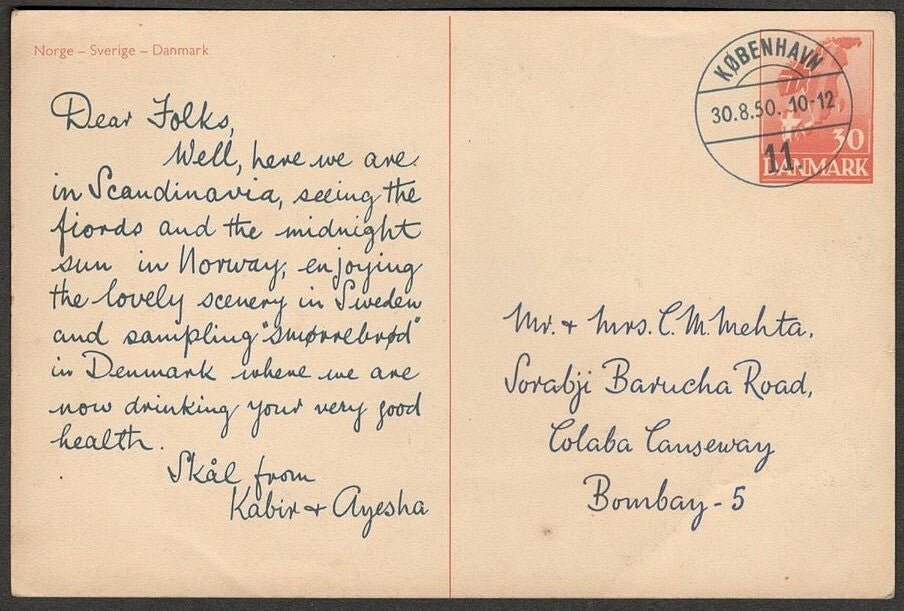 Norge – Sverige – Danmark
Dear Folks,
Well, here we are
in Scandinavia, seeing the
fiords and the midnight
sun in Norway, enjoying
the lovely scenery in Sweden
and sampling "smørrebrød"
in Denmark where we are
now drinking your very good
health.
Skål from
Kabir + Ayesha
KØBENHAVN
30.8.50. 10-12
11.
30
DANMARK
Mr. + Mrs. C. M. Mehta,
Sorabji Barucha Road,
Colaba Causeway
Bombay - 5